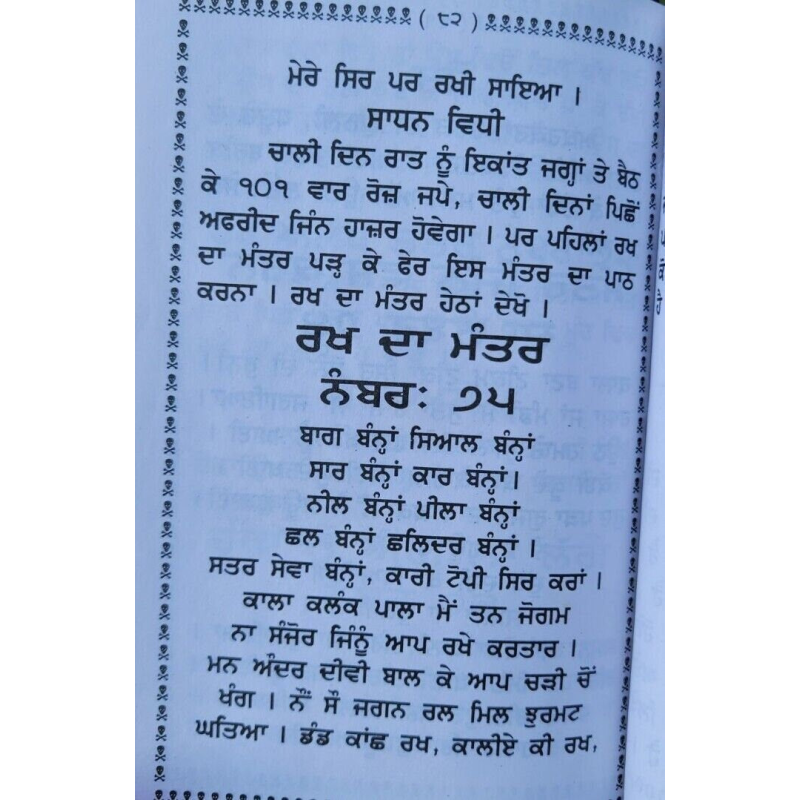 ( ੮੨ )
ਮੇਰੇ ਸਿਰ ਪਰ ਰਖੀ ਸਾਇਆ ।
ਸਾਧਨ ਵਿਧੀ
ਚਾਲੀ ਦਿਨ ਰਾਤ ਨੂੰ ਇਕਾਂਤ ਜਗ੍ਹਾਂ ਤੇ ਬੈਠ
ਕੇ ੧੦੧ ਵਾਰ ਰੋਜ਼ ਜਪੇ, ਚਾਲੀ ਦਿਨਾਂ ਪਿਛੋਂ
ਅਫਰੀਦ ਜਿੰਨ ਹਾਜ਼ਰ ਹੋਵੇਗਾ । ਪਰ ਪਹਿਲਾਂ ਰਖ
ਦਾ ਮੰਤਰ ਪੜ੍ਹ ਕੇ ਫੇਰ ਇਸ ਮੰਤਰ ਦਾ ਪਾਠ
ਕਰਨਾ । ਰਖ ਦਾ ਮੰਤਰ ਹੇਠਾਂ ਦੇਖੋ ।
ਰਖ ਦਾ ਮੰਤਰ
ਨੰਬਰਃ ੭੫
ਬਾਗ ਬੰਨ੍ਹਾਂ ਸਿਆਲ ਬੰਨ੍ਹਾਂ
ਸਾਰ ਬੰਨ੍ਹਾਂ ਕਾਰ ਬੰਨ੍ਹਾਂ।
ਨੀਲ ਬੰਨ੍ਹਾਂ ਪੀਲਾ ਬੰਨ੍ਹਾਂ
ਛਲ ਬੰਨ੍ਹਾਂ ਛਲਿਦਰ ਬੰਨ੍ਹਾਂ ।
ਸਤਰ ਸੇਵਾ ਬੰਨ੍ਹਾਂ, ਕਾਰੀ ਟੋਪੀ ਸਿਰ ਕਰਾਂ ।
ਕਾਲਾ ਕਲੰਕ ਪਾਲਾ ਮੈਂ ਤਨ ਜੋਗਮ
ਨਾ ਸੰਜੋਰ ਜਿੰਨੂੰ ਆਪ ਰਖੇ ਕਰਤਾਰ ।
ਮਨ ਅੰਦਰ ਦੀਵੀ ਬਾਲ ਕੇ ਆਪ ਚੜੀ ਚੋਂ
ਖੰਗ । ਨੌਂ ਸੌ ਜਗਨ ਰਲ ਮਿਲ ਝੁਰਮਟ
ਘਤਿਆ । ਡੰਡ ਕਾਂਛ ਰਖ, ਕਾਲੀਏ ਕੀ ਰਖ,